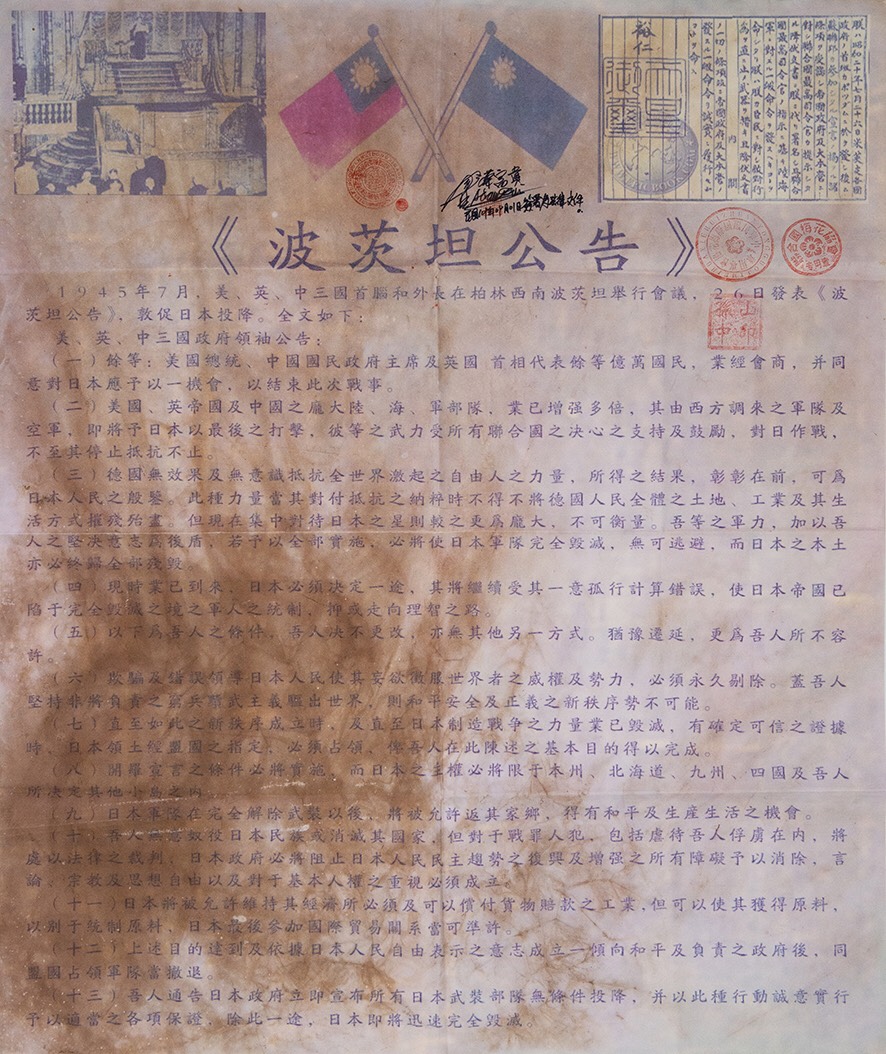 朕ハ昭和二十年七月二十六日米英支各國
政府ノ首班カポツダムニ於テ發シ後ニ
蘇聯邦カ參加シタル宣言ノ掲クル諸
條項ヲ受諾シ帝國政府及大本營ニ
對シ聯合國最高司令官カ提示シタ
ル降伏文書ニ朕ニ代リ署名シ且聯合
國最高司令官ノ指示ニ基キ陸海
軍ニ對スル一般命令ヲ發スヘキコトヲ
命シタリ朕ハ朕カ臣民ニ對シ敵對行
為ヲ直ニ止メ武器ヲ措キ且降伏文書
ノ一切ノ條項竝ニ帝國政府及大本營ノ
發スル一般命令ヲ誠實ニ履行セム
コトヲ命ス
內閣
裕仁
天皇御璽
《波茨坦公告》
1945年7月，美、英、中三國首腦和外長在柏林西南波茨坦舉行會議，26日發表《波
茨坦公告》，敦促日本投降。全文如下：
美、英、中三國政府領袖公告；
（一）餘等：美國總統、中國國民政府主席及英國 首相代表餘等億萬國民，業經會商，并同
意對日本應予以一機會，以結束此次戰事。
（二）美國、英帝國及中國之龐大陸、海、軍部隊，業已增强多倍，其由西方調來之軍隊及
空軍，即將予日本以最後之打擊，彼等之武力受所有聯合國之决心之支持及鼓勵，對日作戰，
不至其停止抵抗不止。
（三）德國無效果及無意識抵抗全世界激起之自由人之力量，所得之結果，彰彰在前，可爲
日本人民之殷鑒。此種力量當其對付抵抗之納粹時不得不將德國人民全體之土地、工業及其生
活方式摧殘殆盡。但現在集中對待日本之星則較之更爲龐大，不可衡量。吾等之軍力，加以吾
人之堅决意志爲後盾，若予以全部實施，必將使日本軍隊完全毀滅，無可逃避，而日本之本土
亦必終歸全部殘毀
（四）現時業已到來，日本必須决定一途，其將繼續受其一意孤行計算錯誤，使日本帝國已
陷于完全毀滅之境之軍人之統制，抑或走向理智之路。
（五）以下爲吾人之條件，吾人决不更改，亦無其他另一方式。猶豫遷延，更爲吾人所不容
許。
（六）欺騙及錯誤領導日本人民使其妄欲徵服世界者之威權及勢力，必須永久剔除。蓋吾人
堅持非將負責之窮兵黷武主義驅出世界，則和平安全及正義之新秩序勢不可能。
（七）直至如此之新秩序成立時，及直至日本制造戰争之力量業已毀滅，有確定可信之證據
時，日本領土經盟國之指定，必須占領，俾吾人在此陳述之基本目的得以完成。
（八）開羅宣言之條件必將實施，而日本之主權必將限于本州、北海道、九州、四國及吾人
所决定其他小島之内。
（九）日本軍隊在完全解除武裝以後，將被允許返其家鄉，得有和平及生産生活之機會。
（十）吾人無意奴役日本民族或消滅其國家，但對于戰罪人犯，包括虐待吾人俘虜在内，將
處以法律之裁判，日本政府必將阻止日本人民民主趨勢之復興及增强之所有障礙予以消除，言
論、宗教及思想自由以及對于基本人權之重視必須成立。
（十一）日本將被允許維持其經濟所必須及可以償付貨物賠款之工業，但可以使其獲得原料，
以别于統制原料，日本最後參加國際貿易關系當可準許。
（十二）上述目的達到及依據日本人民自由表示之意志成立一傾向和平及負責之政府後，同
盟國占領軍隊當撤退。
（十三）吾人通告日本政府立即宣布所有日本武裝部隊無條件投降，并以此種行動誠意實行
予以適當之各項保證，除此一途，日本即將迅速完全毀滅。